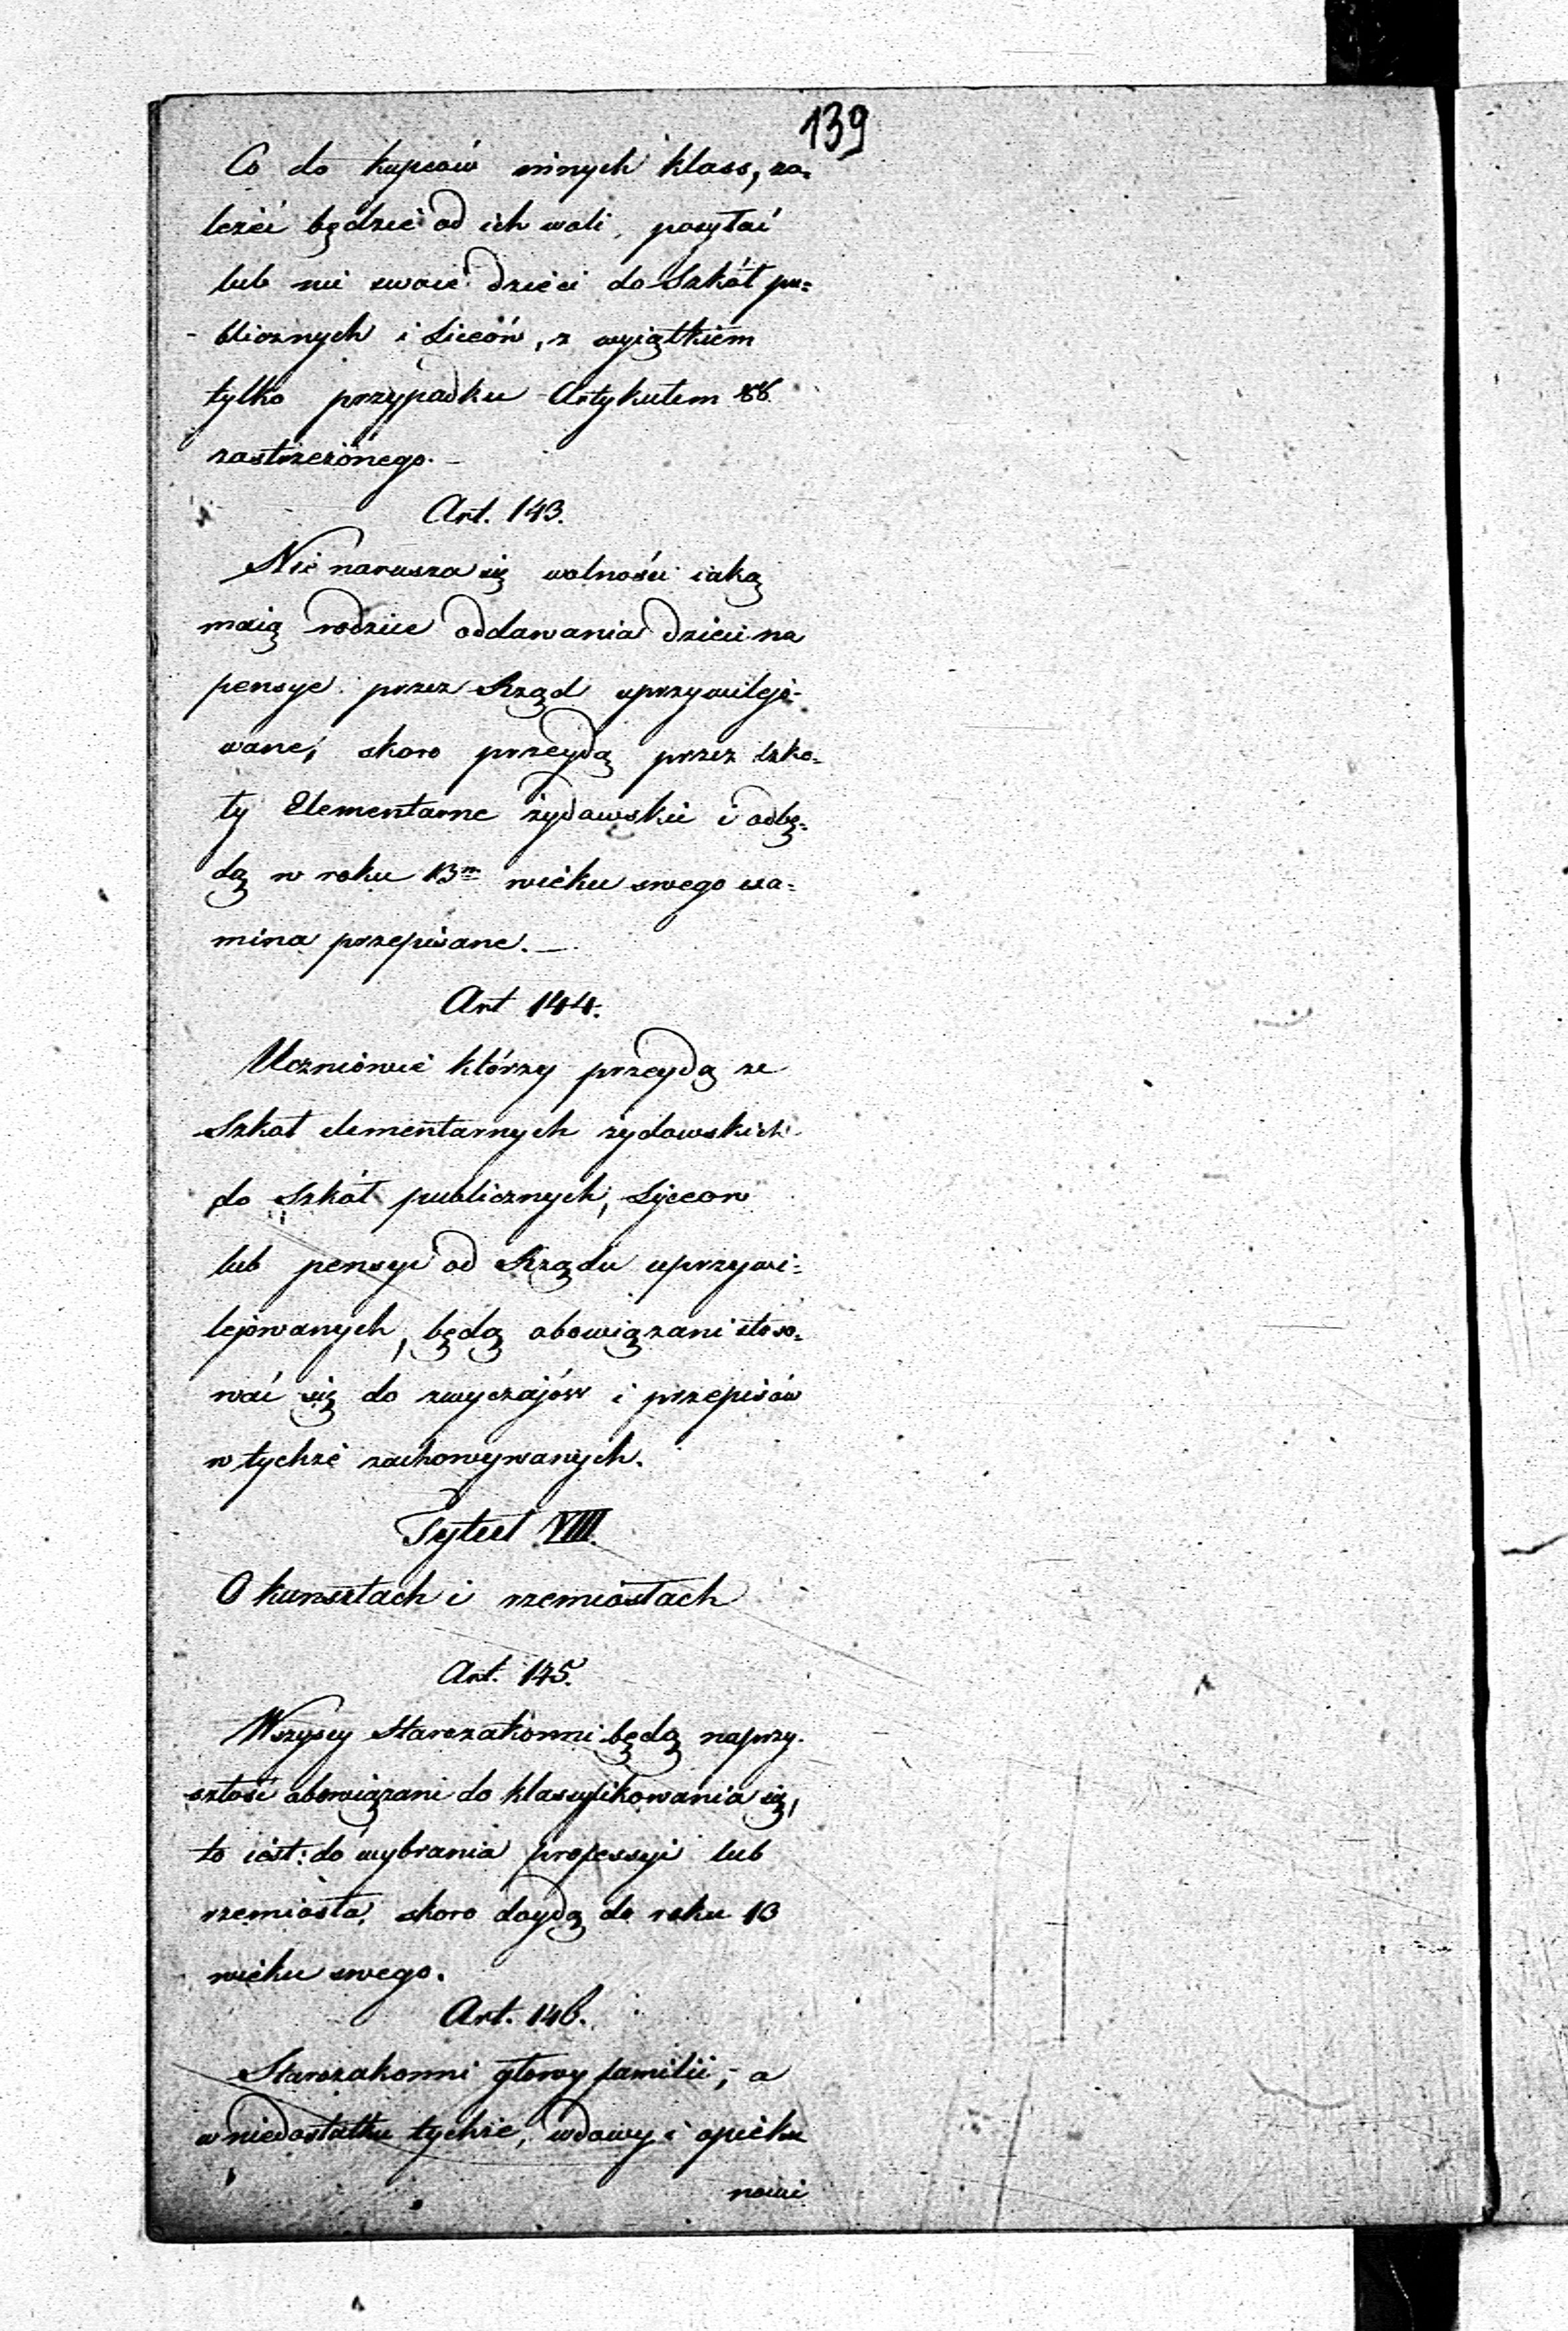 139
Co do kupców innych klass, za=
leżéć będzie od ich woli, posyłać
lub nie swoie dzieci do Szkół pu=
blicznych i Liceów, z wyiątkiem
tylko przypadku Artykułem
zastrzeżonego. —
Art. 143.
Nie narusza się wolności iaką
maią rodzice oddawania dzieci na
pensye przez Rząd uprzywilejo-
wane, skoro przeydą przez szko=
ły Elementarne żydowskie i odbę=
dą w roku 13m wieku swego exa=
mina przepisane. —
Art 144.
Uczniowie którzy przeydą ze
Szkół elementarnych żydowskich
do Szkół publicznych, Lyceow
lub pensyi od Rządu uprzywi=
lejowanych, będą obowiązani stoso=
wać się do zwyczajów i przepisów
w tychże zachowywanych.
Tytuł VIII.
O kunsztach i rzemiosłach
Art. 145.
Wszyscy Starozakonni będą naprzy-
szłość obowiązani do klassyfikowania się,
to iest: do wybrania professyi lub
rzemiosła, skoro doydą do roku 13
wieku swego.
Art. 146.
Starozakonni głowy familii, a
w niedostatku tychże, wdowy i opieku
nowi